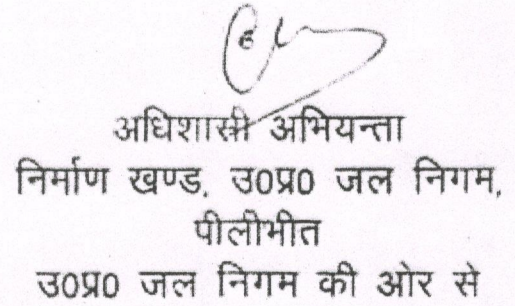 अधिशासी अभियन्ता
निर्माण खण्ड, उ0प्र0 जल निगम,
पीलीभीत
उ0प्र0 जल निगम की ओर से